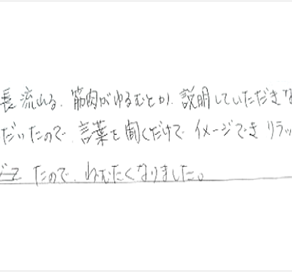 長流れる、筋肉がゆるむとか、説明していただきな
だいたので、言葉を聞くだけで イメージでき リラッ
たので、ねむたくなりました。